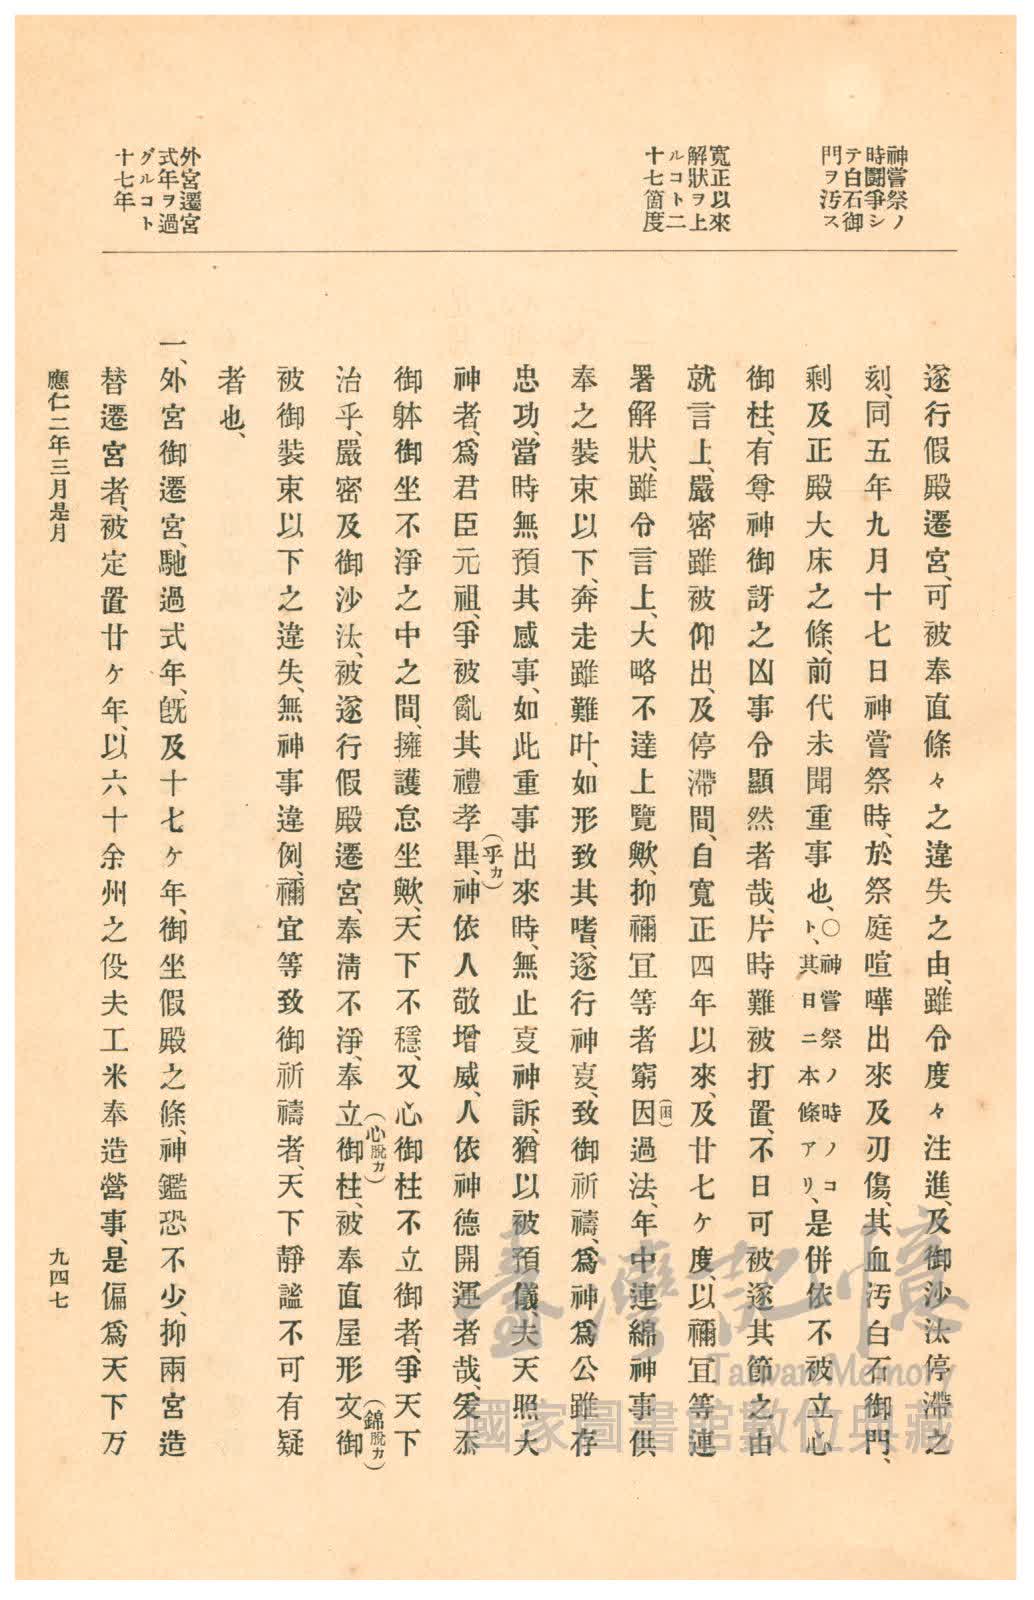 神嘗祭ノ
時鬪爭シ
テ白石御
門ヲ汚ス
寬正以來
解狀ヲ上
ルコト二
十七箇度
外宮遷宮
式年ヲ過
グルコト
十七年
遂行假殿遷宮、可被奉直條々之違失之由、雖令度々注進、及御沙汰停滯之
刻、同五年九月十七日神嘗祭時、於祭庭喧嘩出來及刃傷、其血汚白石御門、
剩及正殿大床之條、前代未聞重事也、〇神嘗祭ノ時ノコト、其日ニ本條アリ、是併依不被立心
御柱、有尊神御訝之凶事令顯然者哉、片時難被打置、不日可被遂其節之由
就言上、嚴密雖被仰出、及停滯間、自寬正四年以來、及廿七ヶ度、以禰宜等連
署解狀、雖令言上、大略不達上覽歟、抑禰宜等者窮因(困)過法、年中連綿神事供
奉之裝束以下、奔走雖難叶、如形致其嗜、遂行神㕝、致御祈禱、爲神爲公雖存
忠功、當時無預其感事、如此重事出來時、無止㕝神訴、猶以被預儀、夫天照大
神者、爲君臣元祖、爭被亂其禮孝畢(乎カ)、神依人敬增威、人依神德開運者哉、爰忝
御躰御坐不淨之中之間、擁護怠坐歟、天下不穩、又心御柱不立御者、爭天下
治乎、嚴密及御沙汰、被遂行假殿遷宮、奉淸不淨、奉立御柱(心脫カ)、被奉直屋形文御(錦脫カ)
被御裝束以下之違失、無神事違例、禰宜等致御祈禱者、天下靜謐不可有疑
者也、
一、外宮御遷宮、馳過式年、旣及十七ヶ年、御坐假殿之條、神鑑恐不少、抑兩宮造
替遷宮者、被定置廿ヶ年、以六十余州之役夫工米奉造營事、是偏爲天下万
應仁二年三月是月
九四七
臺灣記憶
Taiwan Memory
國家圖書館數位典藏